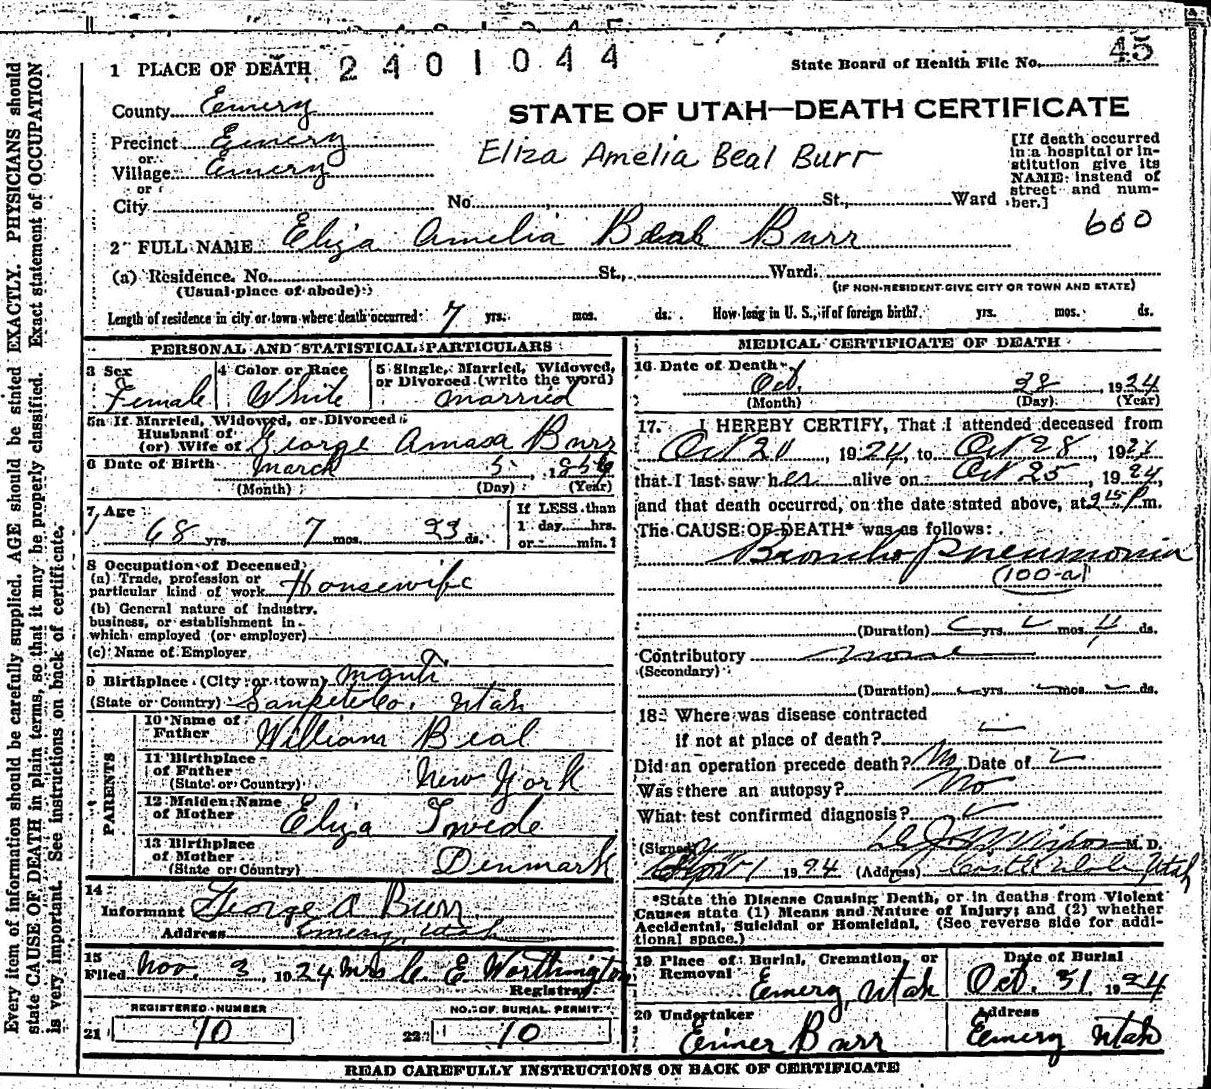 2401044
State Board of Health File No. 45
1 PLACE OF DEATH
County Emery
STATE OF UTAH—DEATH CERTIFICATE
Precinct Emery
or
Village Emery
or
City
Eliza Amelia Beal Burr
[If death occurred
in a hospital or in-
stitution give its
NAME instead of
street and num-
ber.]
No. St., Ward
660
2 FULL NAME Eliza Amelia Beal Burr
(a) Residence. No. St., Ward.
(Usual place of abode)
(IF NON-RESIDENT GIVE CITY OR TOWN AND STATE)
Length of residence in city or town where death occurred 7 yrs. mos. ds. How long in U. S., if of foreign birth? yrs. mos. ds.
PERSONAL AND STATISTICAL PARTICULARS
3 Sex
Female
4 Color or Race
White
5 Single, Married, Widowed,
or Divorced (write the word)
married
5a If Married, Widowed, or Divorced
Husband of
(or) Wife of George Amasa Burr
6 Date of Birth March 5
(Month) (Day) (Year)
7 Age
68 yrs. 7 mos. 23 ds.
If LESS than
1 day hrs.
or min.
8 Occupation of Deceased
(a) Trade, profession or
particular kind of work Housewife
(b) General nature of industry,
business, or establishment in
which employed (or employer)
(c) Name of Employer
9 Birthplace (City or town) Manti
(State or Country) Sanpete Co. Utah
PARENTS
10 Name of
Father William Beal
11 Birthplace
of Father
(State or Country) New York
12 Maiden Name
of Mother Eliza Twede
13 Birthplace
of Mother
(State or Country) Denmark
14
Informant George A Burr
Address Emery, Utah
15
Filed Nov. 3, 1924 Mrs C. E Worthington
Registrar
REGISTERED NUMBER
21 10
NO. OF BURIAL PERMIT
22 10
MEDICAL CERTIFICATE OF DEATH
16 Date of Death
Oct. 28 1924
(Month) (Day) (Year)
17. I HEREBY CERTIFY, That I attended deceased from
Oct 20, 1924, to Oct 28, 1924
that I last saw her alive on Oct 25, 1924,
and that death occurred, on the date stated above, at 9 15 P m.
The CAUSE OF DEATH* was as follows:
Broncho Pneumonia
(100-a)
(Duration) yrs. mos. 4 ds.
Contributory none
(Secondary)
(Duration) yrs. mos. ds.
18 Where was disease contracted
if not at place of death?
Did an operation precede death? No Date of
Was there an autopsy? No
What test confirmed diagnosis?
(Signed) M. D.
1924 (Address) Castle Dale, Utah
*State the Disease Causing Death, or in deaths from Violent
Causes state (1) Means and Nature of Injury; and (2) whether
Accidental, Suicidal or Homicidal. (See reverse side for addi-
tional space.)
19 Place of Burial, Cremation, or
Removal
Emery, Utah
Date of Burial
Oct. 31 1924
20 Undertaker
Address
Emery Utah
READ CAREFULLY INSTRUCTIONS ON BACK OF CERTIFICATE
Every item of information should be carefully supplied. AGE should be stated EXACTLY. PHYSICIANS should
state CAUSE OF DEATH in plain terms, so that it may be properly classified. Exact statement of OCCUPATION
is very important. See instructions on back of certificate.